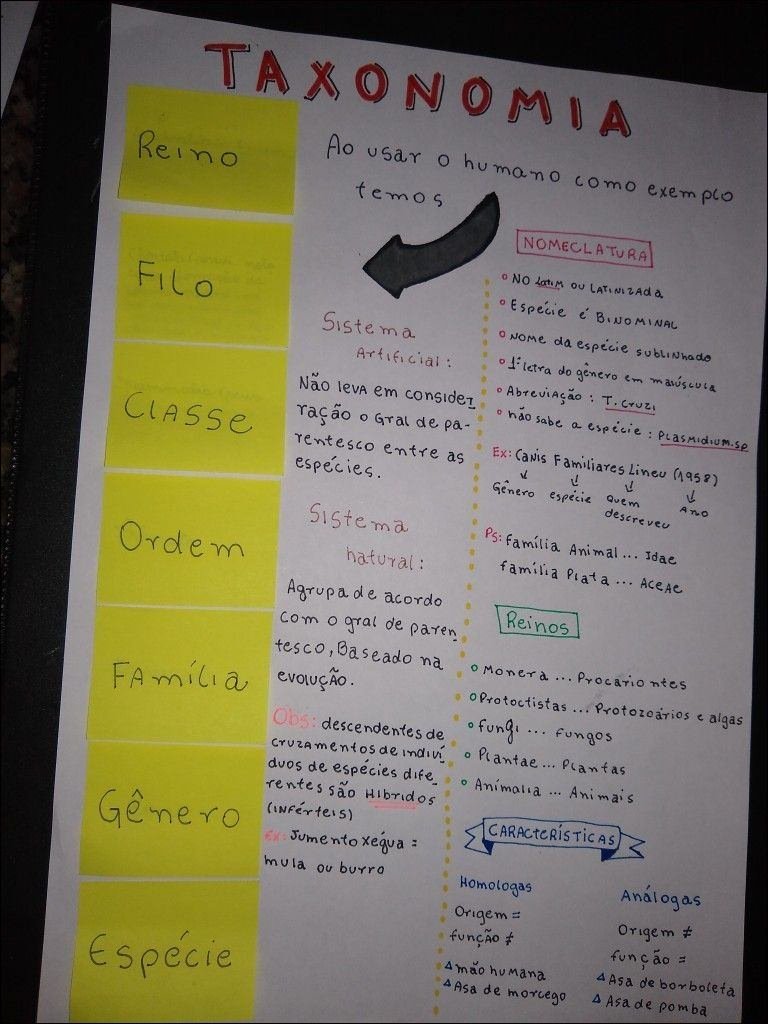 TAXONOMIA
Reino
Filo
Classe
Ordem
Família
Gênero
Espécie
Ao usar o humano como exemplo
temos
Sistema
Artificial:
Não leva em conside
ração o Gral de pa-
rentesco entre as
espécies.
Sistema
natural:
Agrupa de acordo
com o gral de paren
tesco, Baseado na
evolução.
Obs: descendentes de
cruzamentos de indiví
duos de espécies dife
rentes são Híbridos
(inférteis)
Ex: Jumento x égua =
mula ou burro
NOMECLATURA
No Latim ou Latinizada
Espécie é Binominal
Nome da espécie sublinhado
1ª letra do gênero em maiúscula
Abreviação: T. cruzi
não sabe a espécie: Plasmidium.sp
Ex: Canis Familiares Lineu (1958)
Gênero espécie quem Ano
descreveu
Ps: família Animal ... Idae
família Plata ... Aceae
Reinos
Monera ... Procariontes
Protoctistas ... Protozoários e algas
Fungi ... Fungos
Plantae ... Plantas
Animalia ... Animais
CARACTERÍSTICAS
Homologas
Origem =
função ≠
mão humana
Asa de morcego
Análogas
Origem ≠
função =
Asa de borboleta
Asa de pomba